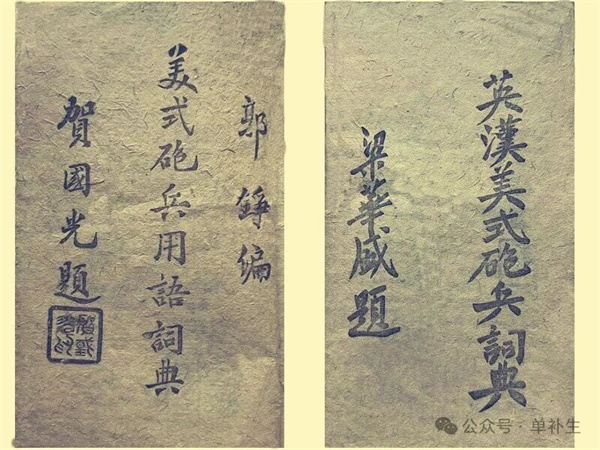 郭錚編
美式砲兵用語詞典
賀國光題
英漢美式砲兵詞典
梁華盛題
公众号·单补生